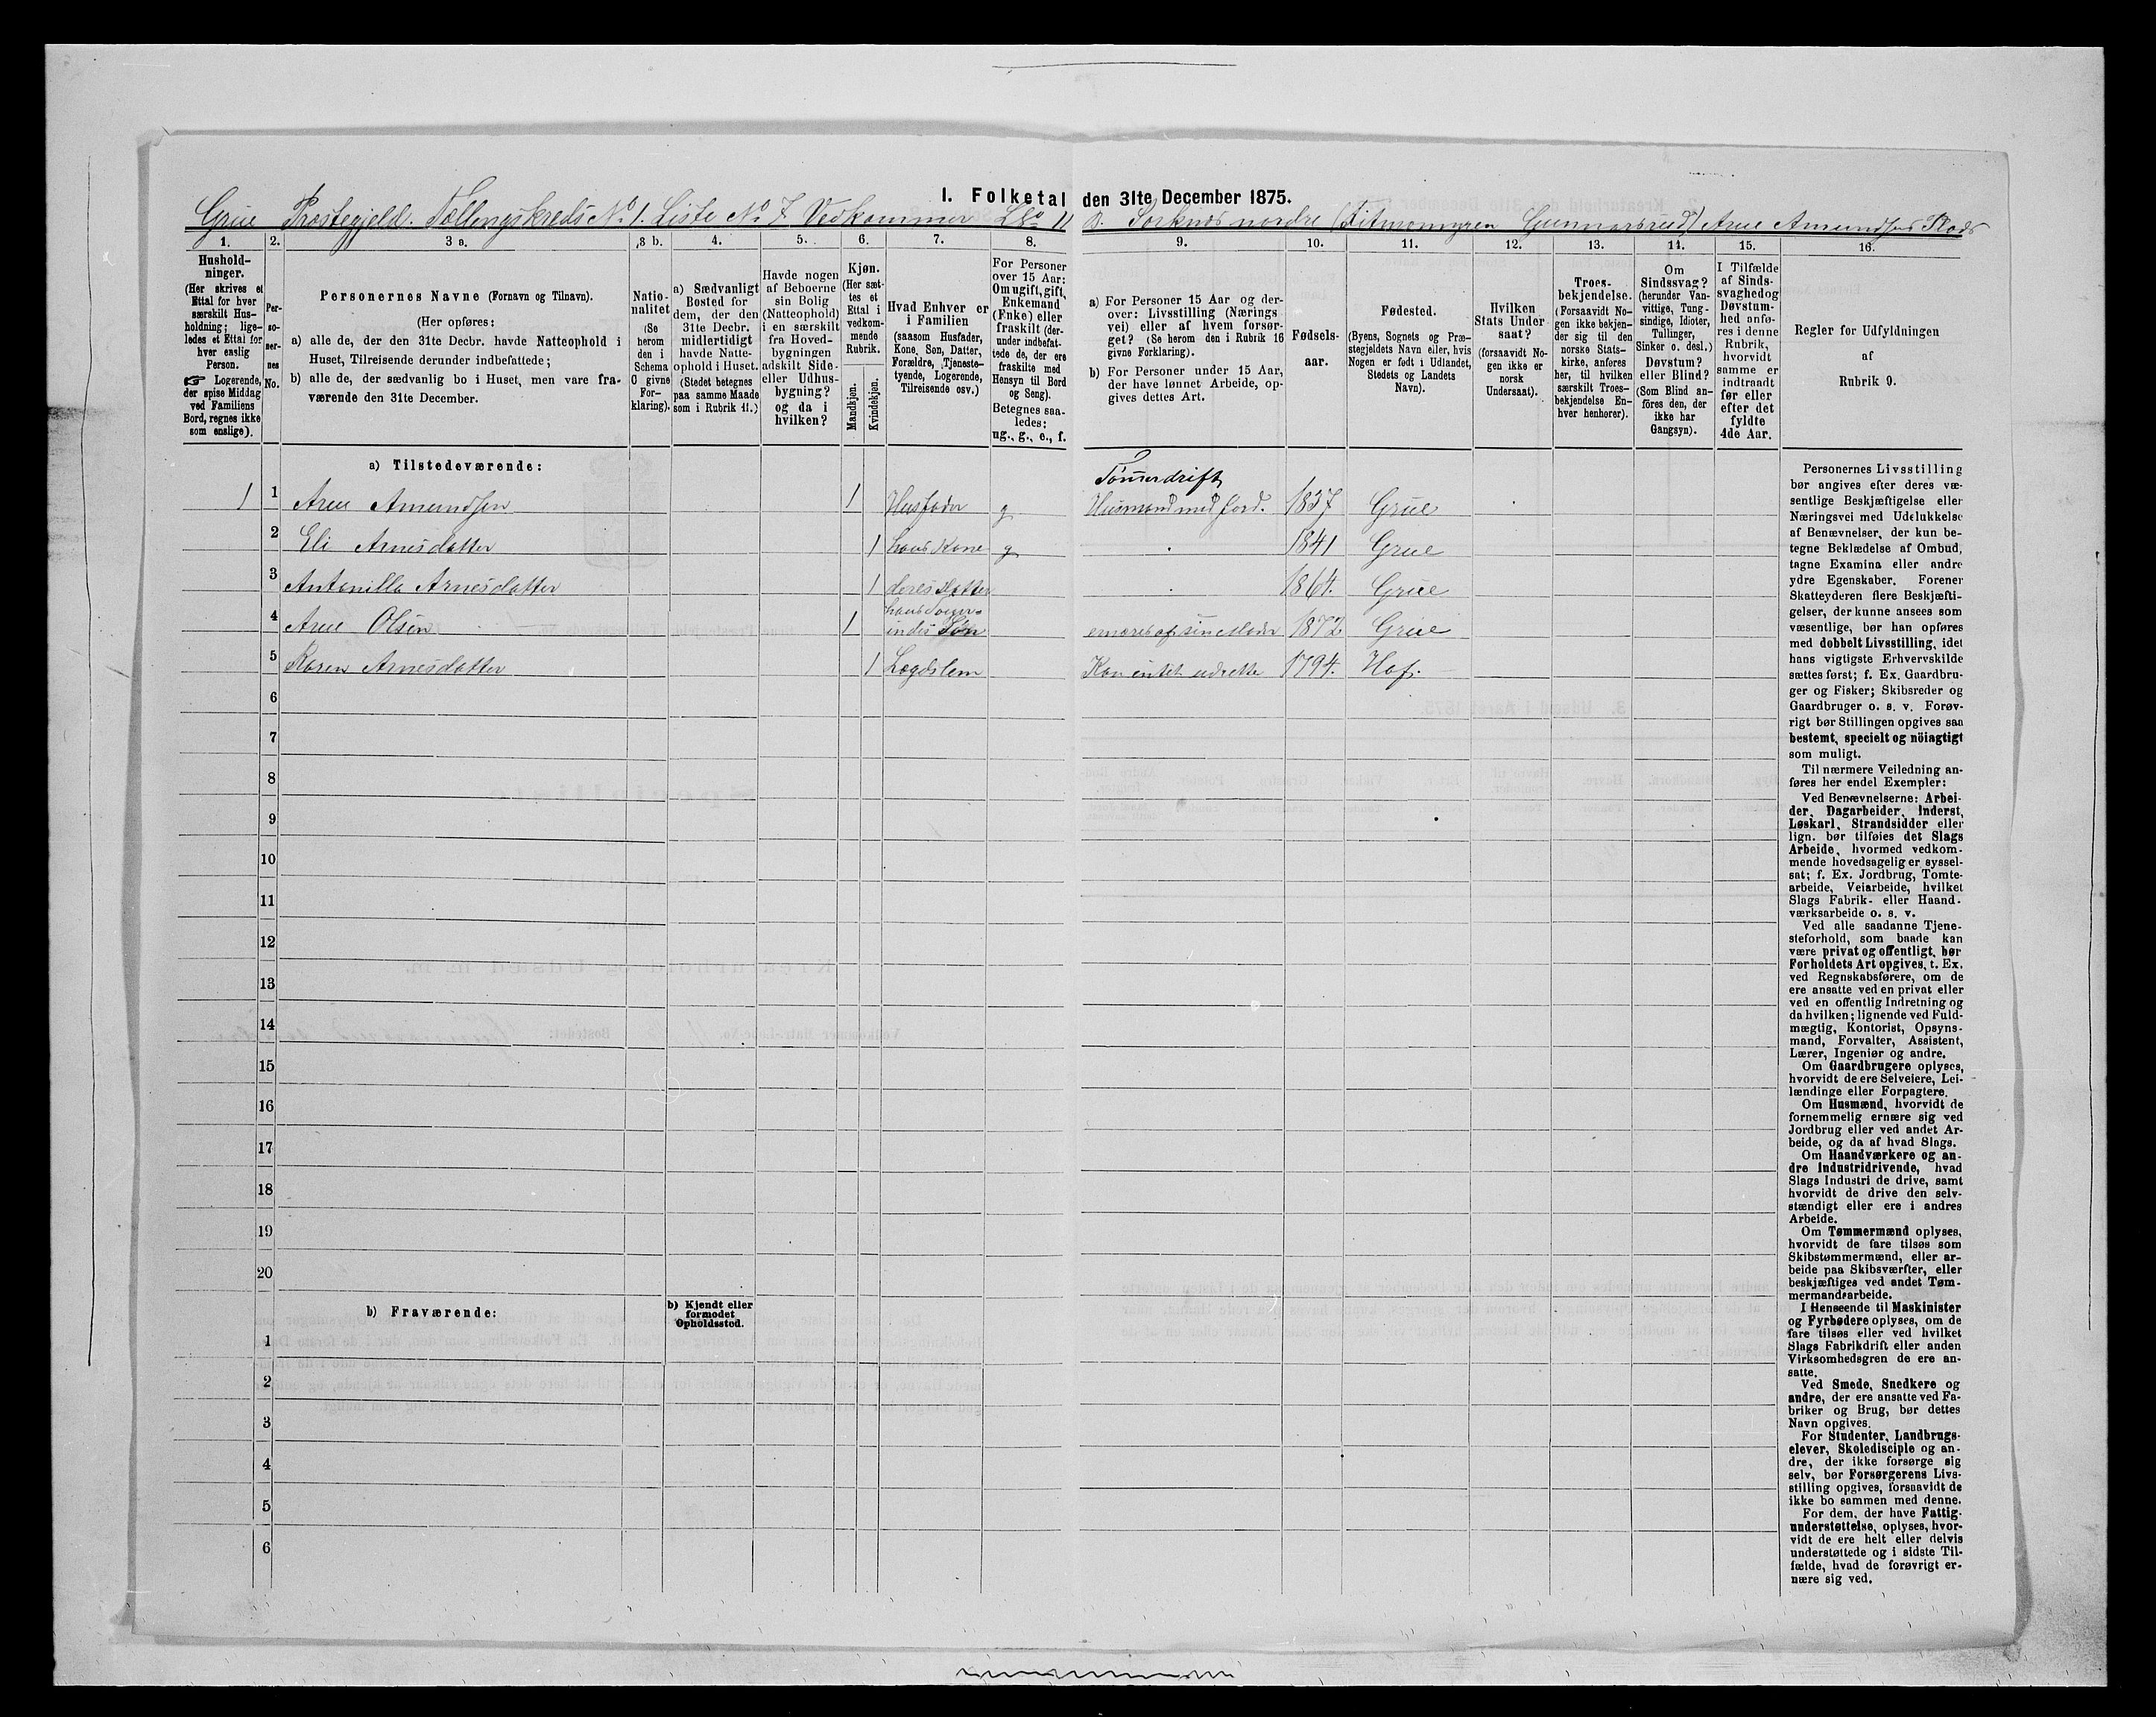 I. Folketal den 31te December 1875.
Grue Præstegjeld. Tællingskreds No 1. Liste No 7 Vedkommer Lbo 11 Sorknes nordre (Gunnarsrud) Arne Amundsens Plads
1. 2. 3 a. 3 b. 4. 5. 6. 7. 8. 9. 10. 11. 12. 13. 14. 15. 16.
Hushold-
ninger.
(Her skrives et
Ettal for hver
særskilt Hus-
holdning; lige-
ledes et Ettal for
hver enslig
Person.
☞ Logerende,
der spise Middag
ved Familiens
Bord, regnes ikke
som enslige).
Per-
so-
ner-
nes
No.
Personernes Navne (Fornavn og Tilnavn).
(Her opføres:
a) alle de, der den 31te Decbr. havde Natteophold i
Huset, Tilreisende derunder indbefattede;
b) alle de, der sædvanlig bo i Huset, men vare fra-
værende den 31te December.
Natio-
nalitet
(Se
herom
den i
Schema
O givne
For-
klaring).
a) Sædvanligt
Bosted for
dem, der den
31te Decbr.
midlertidigt
havde Natte-
ophold i Huset.
(Stedet betegnes
paa samme Maade
som i Rubrik 11.)
Havde nogen
af Beboerne
sin Bolig
(Natteophold)
i en særskilt
fra Hoved-
bygningen
adskilt Side-
eller Udhus-
bygning?
og da i
hvilken?
Kjøn.
(Her sæt-
tes et
Ettal i
vedkom-
mende
Rubrik.
Mandkjøn.
Kvindekjøn.
Hvad Enhver er
i Familien
(saasom Husfader,
Kone, Søn, Datter,
Forældre, Tjeneste-
tyende, Logerende,
Tilreisende osv.)
For Personer
over 15 Aar:
Om ugift, gift,
Enkemand
(Enke) eller
fraskilt (der-
under indbefat-
tede de, der ere
fraskilte med
Hensyn til Bord
og Seng).
Betegnes saa-
ledes:
ug., g., e., f.
a) For Personer 15 Aar og der-
over: Livsstilling (Nærings
vei) eller af hvem forsør-
get? (Se herom den i Rubrik 16
givne Forklaring).
b) For Personer under 15 Aar,
der have lønnet Arbeide, op-
gives dettes Art.
Fødsels-
aar.
Fødested.
(Byens, Sognets og Præ-
stegjeldets Navn eller, hvis
Nogen er født i Udlandet,
Stedets og Landets
Navn).
Hvilken
Stats Under
saat?
(forsaavidt No-
gen ikke er
norsk
Undersaat).
Troes-
bekjendelse.
(Forsaavidt No-
gen ikke bekjen-
der sig til den
norske Stats-
kirke, anføres
her, til hvilken
særskilt Troes-
bekjendelse En-
hver henhører).
Om
Sindssvag?
(herunder Van-
vittige, Tung-
sindige, Idioter,
Tullinger,
Sinker o. desl.)
Døvstum?
eller Blind?
(Som Blind an-
føres den, der
ikke har
Gangsyn).
I Tilfælde
af Sinds-
svaghed og
Døvstum-
hed anfø-
res i denne
Rubrik,
hvorvidt
samme er
indtraadt
før eller
efter det
fyldte
4de Aar.
Regler for Udfyldningen
af
Rubrik 9.
a) Tilstedeværende:
Tømerdrift
1 1 Arne Amundsen 1 Husfader g Husmand med Jord. 1837 Grue
2 Eli Arnesdatter 1 hans Kone g 1841 Grue
3 Antonilla Arnesdatter 1 deres Datter 1864. Grue
4 Arne Olsen 1 Søn ernæres af sin Moder 1872 Grue
5 Karen Arnesdatter 1 Lægdslem Kan intet udrette 1794. Hof.
6
7
8
9
10
11
12
13
14
15
16
17
18
19
20
b) Fraværende:
b) Kjendt eller
formodet
Opholdssted.
1
2
3
4
5
6
Personernes Livsstilling
bør angives efter deres væ-
sentlige Beskjæftigelse eller
Næringsvei med Udelukkelse
af Benævnelser, der kun be-
tegne Beklædelse af Ombud,
tagne Examina eller andre
ydre Egenskaber. Forener
Skatteyderen flere Beskjæfti-
gelser, der kunne ansees som
væsentlige, bør han opføres
med dobbelt Livsstilling, idet
hans vigtigste Erhvervskilde
sættes først; f. Ex. Gaardbru-
ger og Fisker; Skibsreder og
Gaardbruger o. s. v. Forøv-
rigt bør Stillingen opgives saa
bestemt, specielt og nöiagtigt
som muligt.
Til nærmere Veiledning an-
føres her endel Exempler:
Ved Benævnelserne: Arbei-
der, Dagarbeider, Inderst,
Løskarl, Strandsidder eller
lign. bør tilføies det Slags
Arbeide, hvormed vedkom-
mende hovedsagelig er syssel-
sat; f. Ex. Jordbrug, Tomte-
arbeide, Veiarbeide, hvilket
Slags Fabrik- eller Haand-
værksarbeide o. s. v.
Ved alle saadanne Tjene-
steforhold, som baade kan
være privat og offentligt, bør
Forholdets Art opgives, t. Ex.
ved Regnskabsførere, om de
ere ansatte ved en privat eller
ved en offentlig Indretning og
da hvilken; lignende ved Fuld-
mægtig, Kontorist, Opsyns-
mand, Forvalter, Assistent,
Lærer, Ingeniør og andre.
Om Gaardbrugere oplyses,
hvorvidt de ere Selveiere, Lei-
lændinge eller Forpagtere.
Om Husmænd, hvorvidt de
fornemmelig ernære sig ved
Jordbrug eller ved andet Ar-
beide, og da af hvad Slags.
Om Haandværkere og an-
dre Industridrivende, hvad
Slags Industri de drive, samt
hvorvidt de drive den selv-
stændigt eller ere i andres
Arbeide.
Om Tømmermænd oplyses,
hvorvidt de fare tilsøs som
Skibstømmermænd, eller ar-
beide paa Skibsværfter, eller
beskjæftiges ved andet Tøm-
mermandsarbeide.
I Henseende til Maskinister
og Fyrbødere oplyses, om de
fare tilsøs eller ved hvilket
Slags Fabrikdrift eller anden
Virksomhedsgren de ere an-
satte.
Ved Smede, Snedkere og
andre, der ere ansatte ved Fa-
briker og Brug, bør dettes
Navn opgives.
For Studenter, Landbrugs-
elever, Skoledisciple og an-
dre, der ikke forsørge sig
selv, bør Forsørgerens Livs-
stilling opgives, forsaavidt de
ikke bo sammen med denne.
For dem, der have Fattig-
understøttelse, oplyses, hvor-
vidt de ere helt eller delvis
understøttede og i sidste Til-
fælde, hvad de forøvrigt er-
nære sig ved.